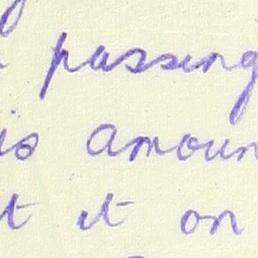 passing
is amoun
t it on